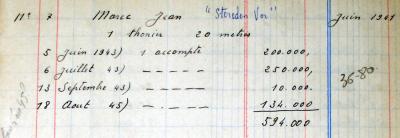 Nº 7 Marec Jean "Stereden Vor" Juin 1941
1 thonier 20 metres
5 Juin 1943) 1 accompte 200.000,
6 Juillet 43) — — — — — 250.000,
13 Septembre 43) — — — — — 10.000.
18 Aout 45) — — — — 134.000
594.000
36-80